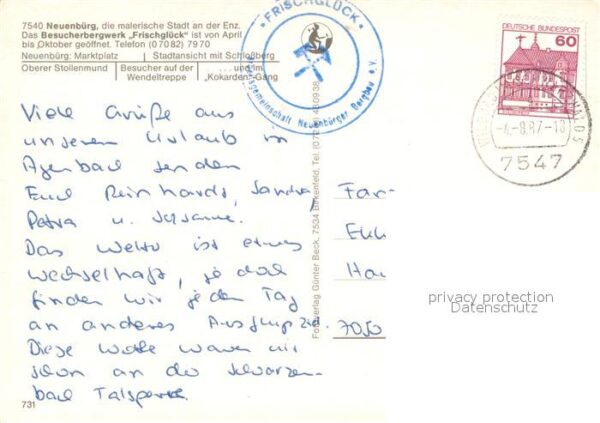 7540 Neuenbürg, die malerische Stadt an der Enz.
Das Besucherbergwerk „Frischglück" ist von April
bis Oktober geöffnet. Telefon (07082) 7970
Neuenbürg: Marktplatz | Stadtansicht mit Schloßberg
Oberer Stollenmund | Besucher auf der Wendeltreppe | ... und im „Kokarden"-Gang
FRISCHGLÜCK
Arbeitsgemeinschaft Neuenbürger Bergbau e.V.
DEUTSCHE BUNDESPOST
60
-4.-8.87-18
7547
Viele Grüße aus
unserem Urlaub in
senden
Euch Reinhardt, Sandra,
Petra u. Susanne.
Das Wetter ist etwas
wechselhaft, jedoch
finden wir jeden Tag
ein anderes Ausflugsziel.
Diese Woche waren wir
schon an der Schwarzen-
bach Talsperre.
Fam
Ha
7050
Fotoverlag Günter Beck, 7534 Birkenfeld, Tel.
privacy protection
Datenschutz
731